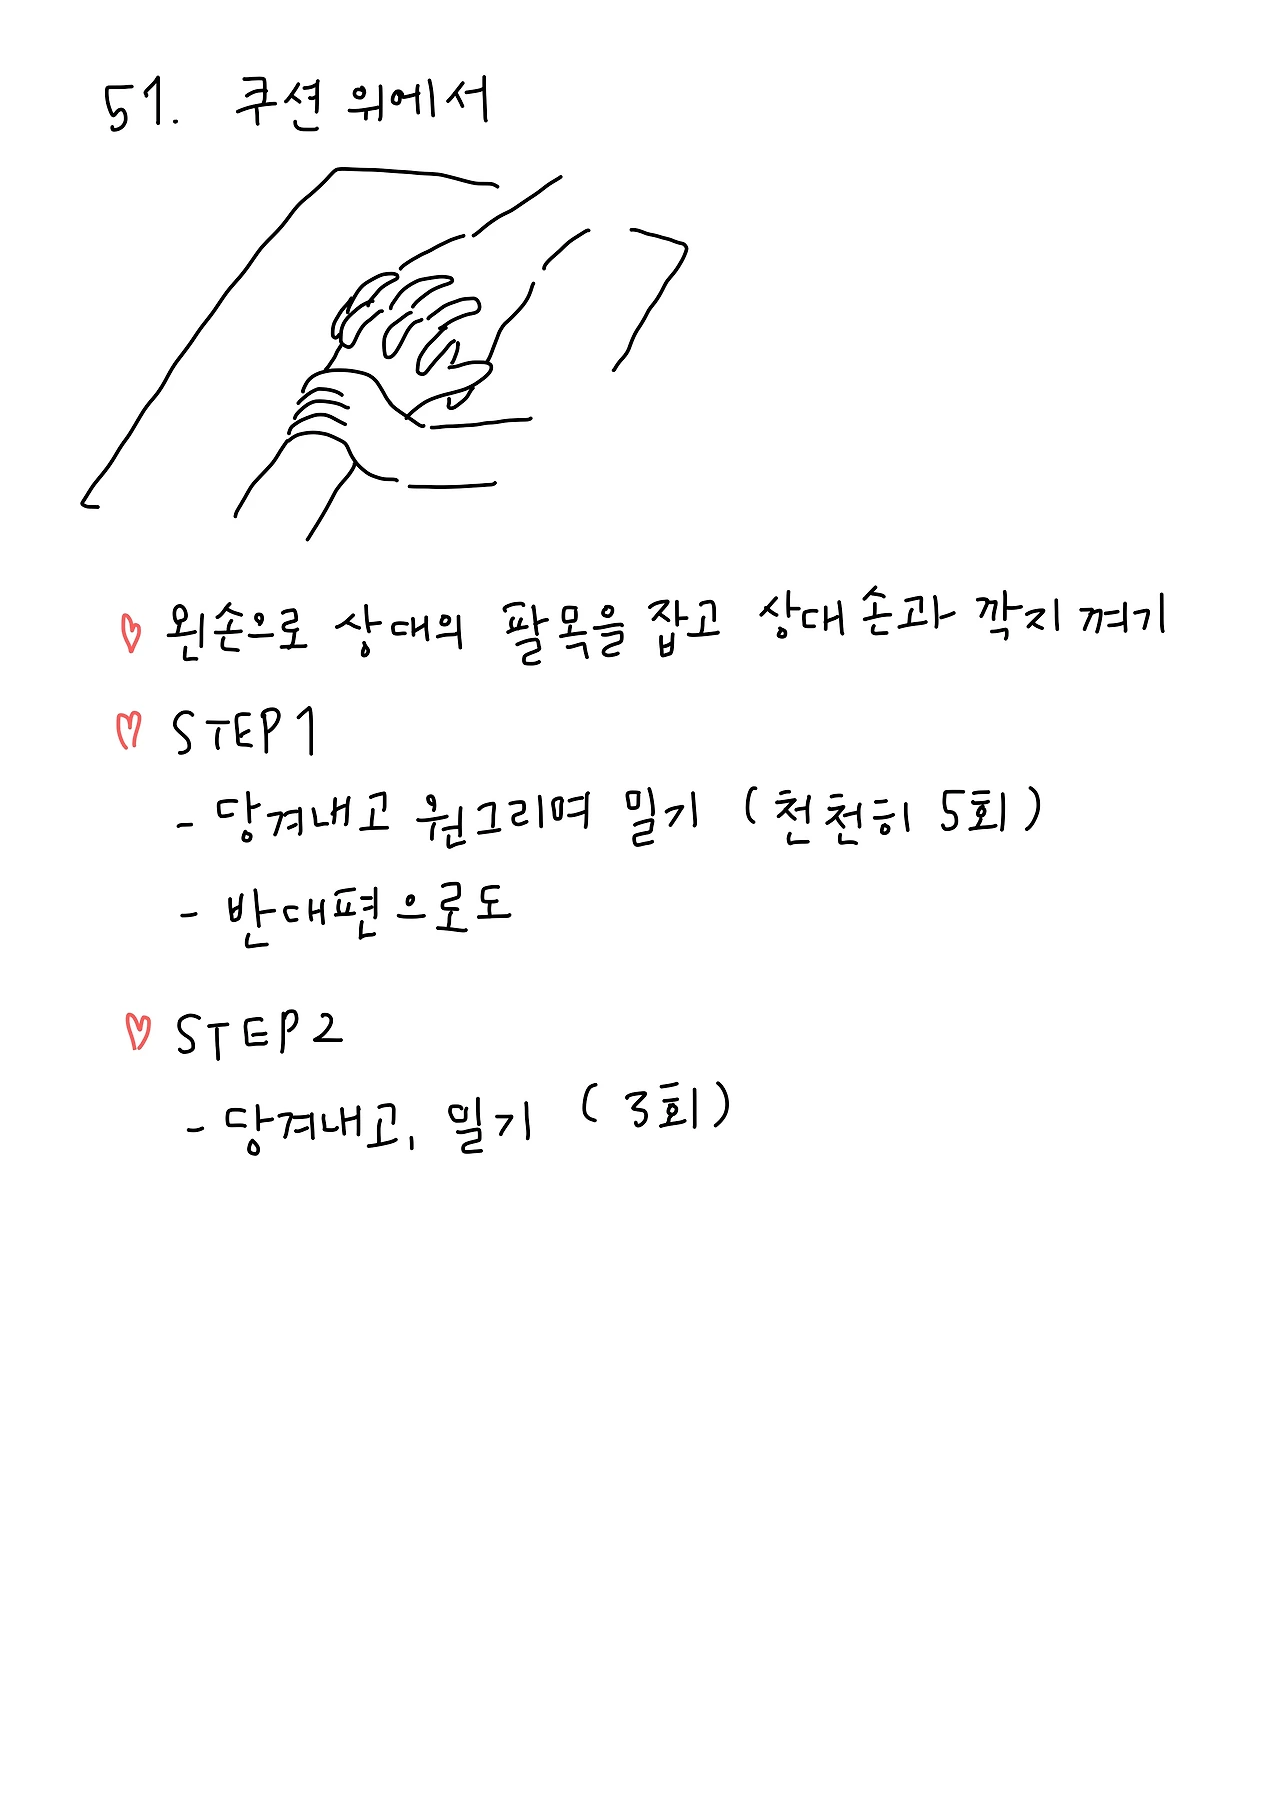 51. 쿠션 위에서
왼손으로 상대의 팔목을 잡고 상대 손과 깍지 껴기
STEP1
- 당겨내고 원그리며 밀기 (천천히 5회)
- 반대편으로도
STEP2
- 당겨내고, 밀기 (3회)